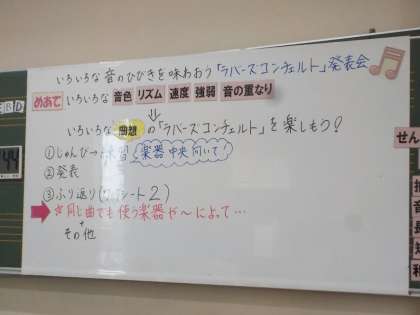 いろいろな音のひびきを味わおう「ラバースコンチェルト」発表会
めあて いろいろな 音色 リズム 速度 強弱 音の重なり
⇓
いろいろな 曲想 の「ラバースコンチェルト」を楽しもう!
①じゅんび→練習 楽器中央向いて!
②発表
③ふり返り(ワークシート2)
☆同じ曲でも使う楽器や〜によって…
+
その他
せん